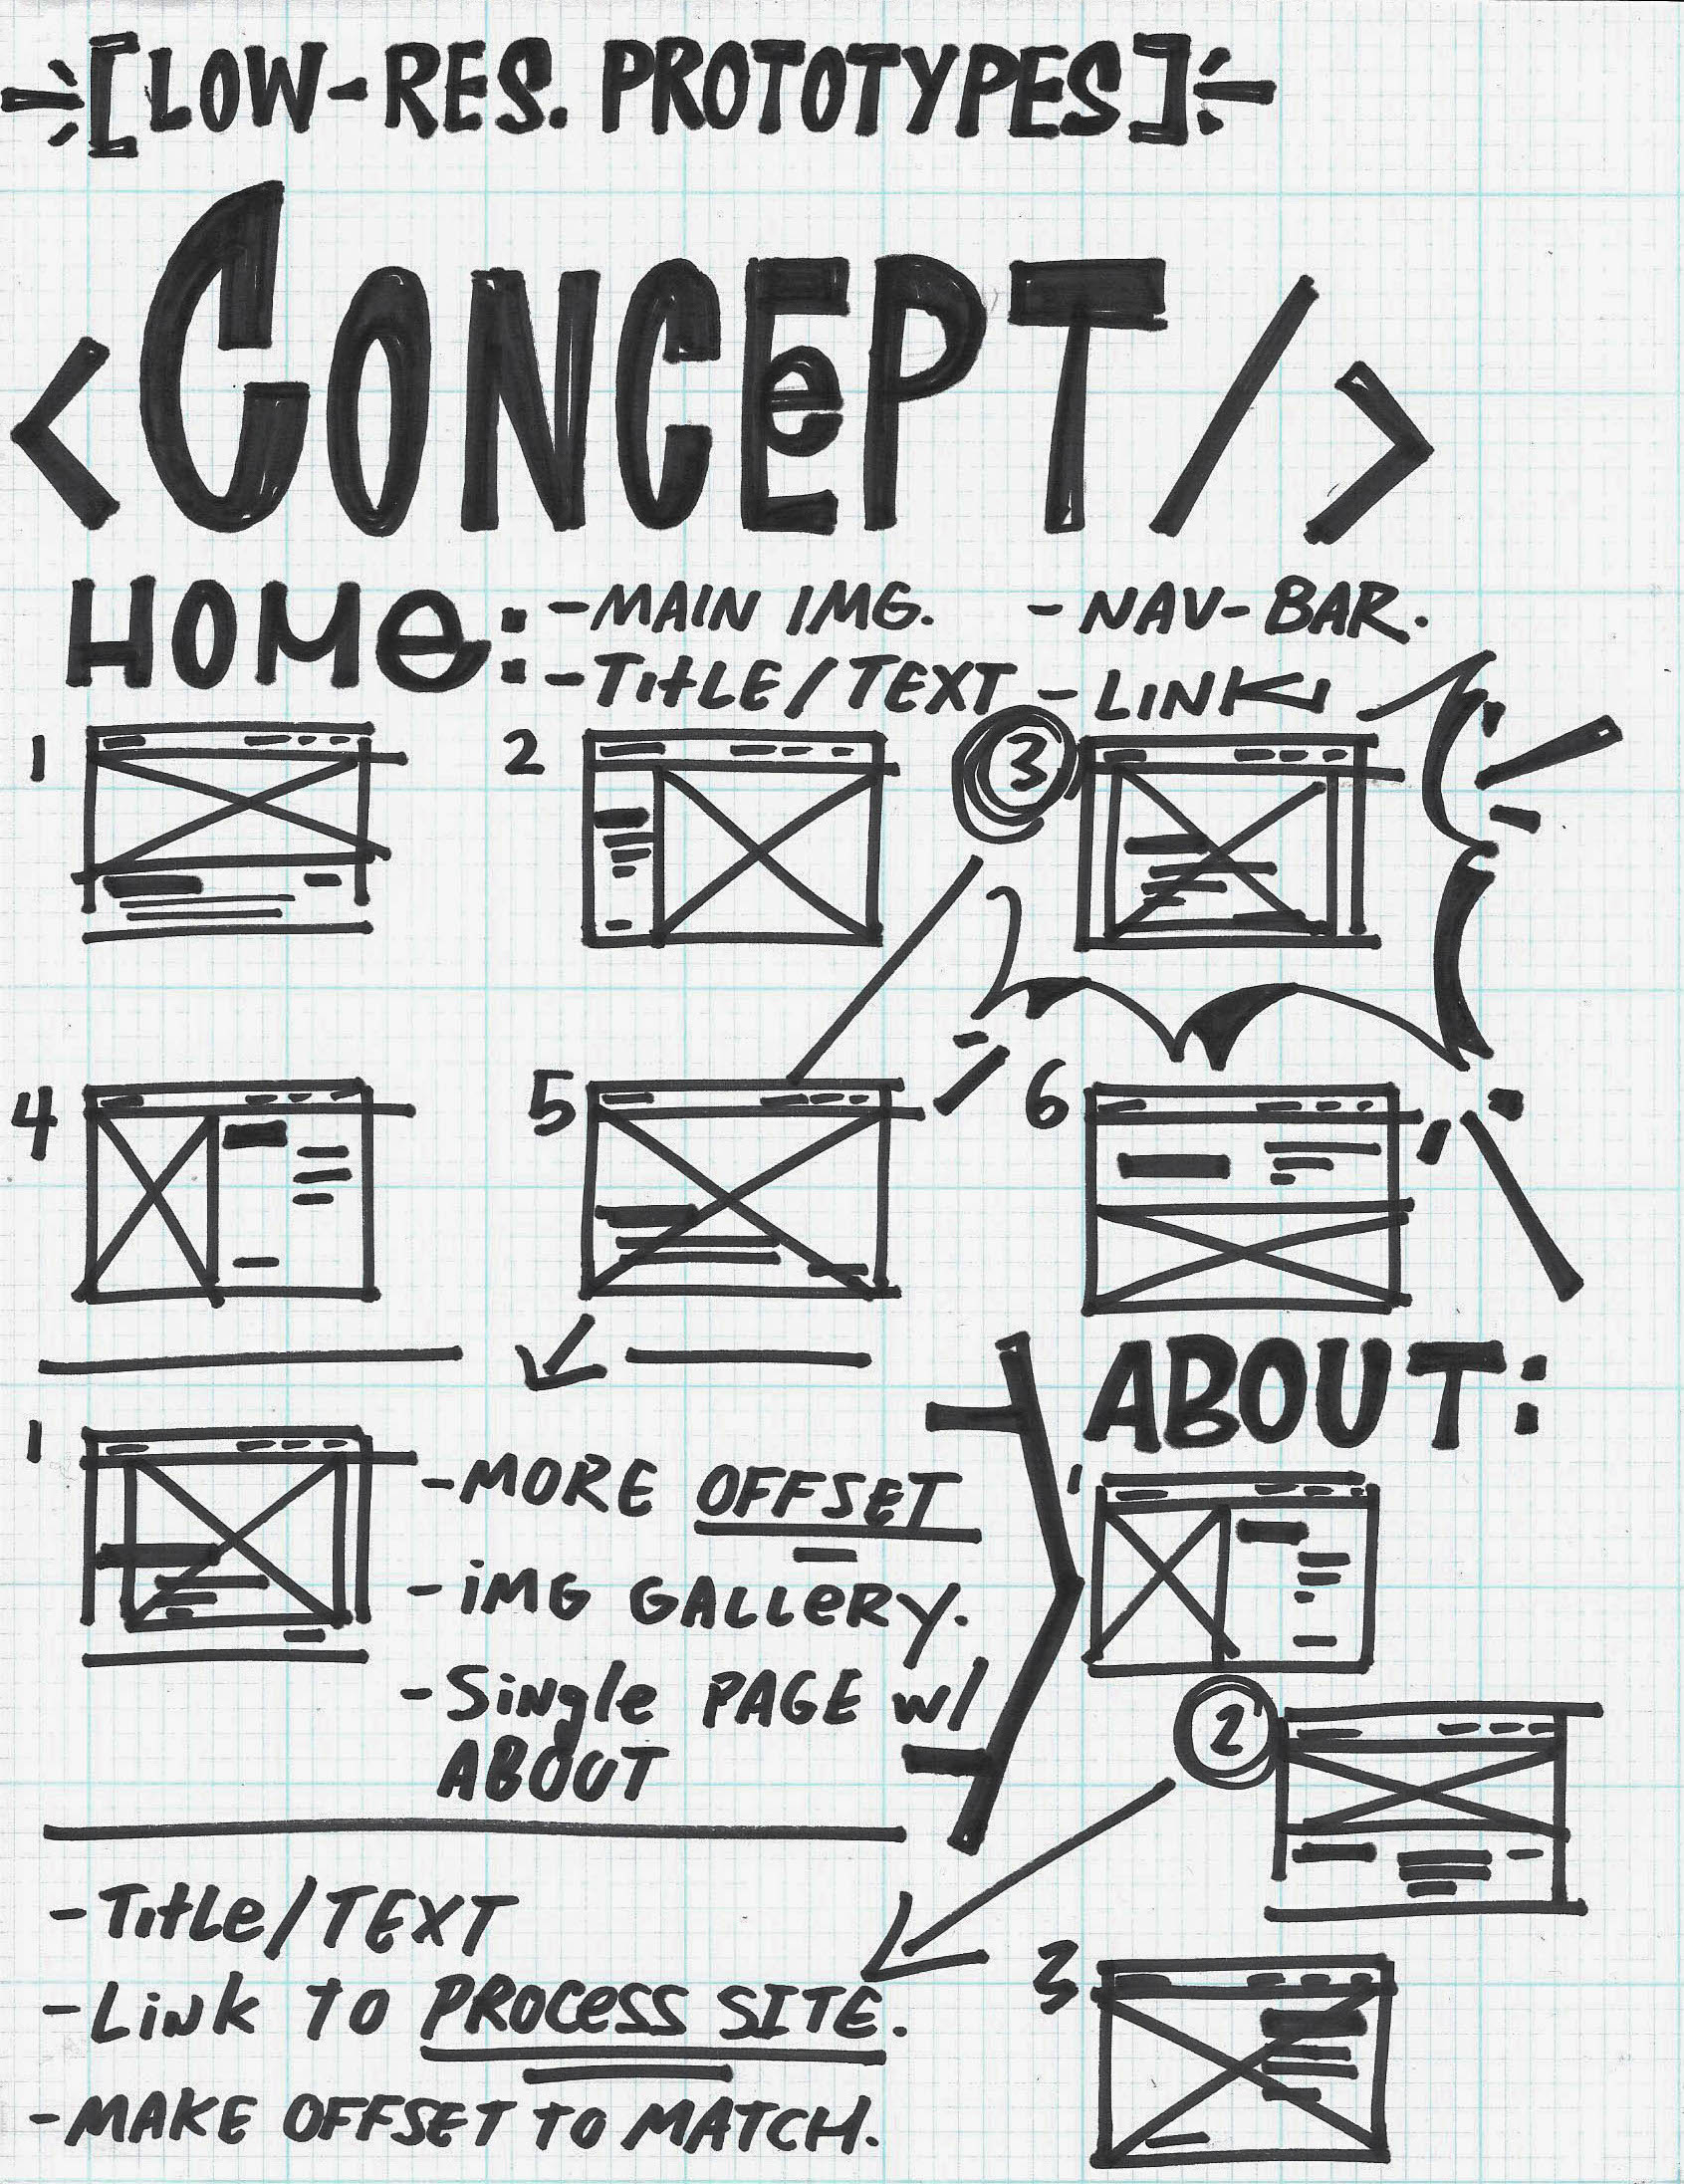 [LOW-RES. PROTOTYPES]
<CONCePT/>
HOMe: -MAIN IMG. - NAV-BAR.
-TitLE/TEXT - LINK
1 2 3
4 5 6
ABOUT:
1 -MORE OFFSET
1
-iMG GALLeRY.
-SiNgle PAGE w/
ABOUT
2
-TitLe/TEXT
-LiNk to PROCeSS SITE.
3
-MAKE OFFSET TO MATCH.